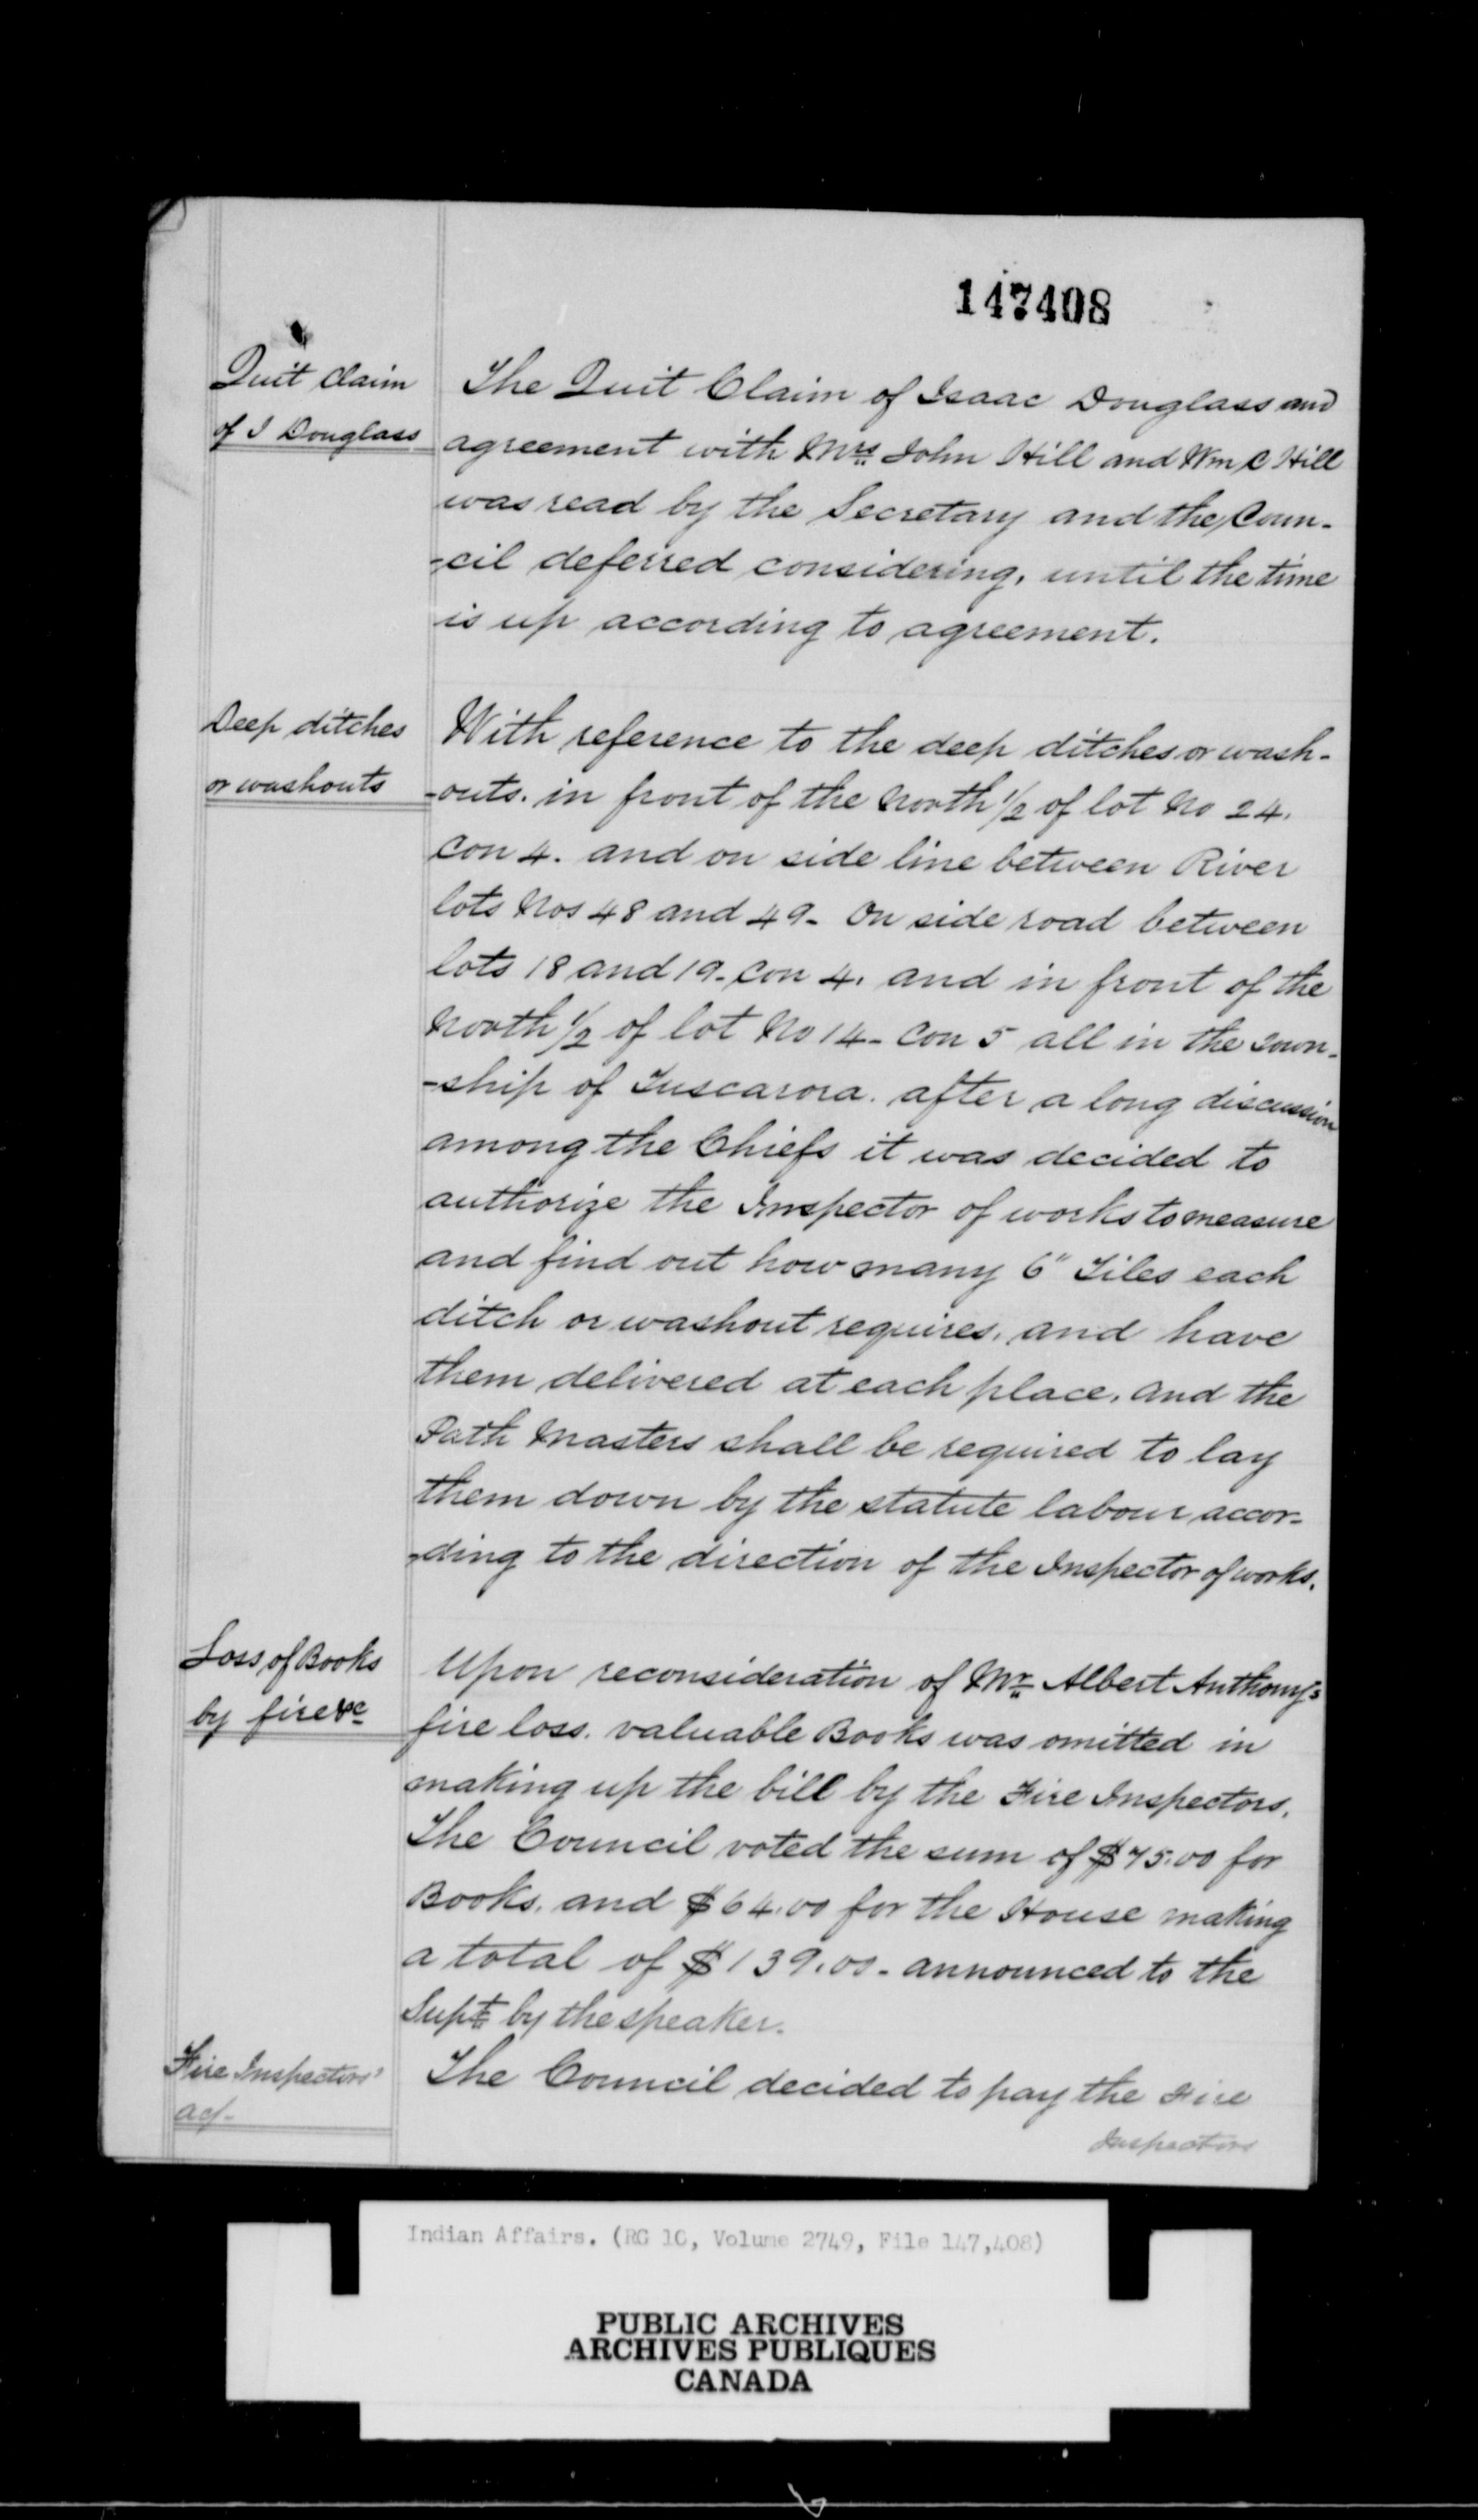 147408
Quit claim
of I Douglass
The Quit Claim of Isaac Douglass and
agreement with Mrs John Hill and Wm C Hill
was read by the Secretary and the Coun-
-cil deferred considering, until the time
is up according to agreement.
Deep ditches
or washouts
With reference to the deep ditches or wash-
-outs. in front of the North 1/2 of lot No 24.
Con 4. and on side line between River
lots Nos 48 and 49- On side road between
lots 18 and 19- Con 4. and in front of the
North 1/2 of lot No 14- Con 5 all in the Town-
-ship of Tuscarora. after a long discussion
among the Chiefs it was decided to
authorize the Inspector of works to measure
and find out how many 6" Tiles each
ditch or washout requires. and have
them delivered at each place. and the
Path Masters shall be required to lay
them down by the statute labour accor-
-ding to the direction of the Inspector of works.
Loss of Books
by fire &c
Upon reconsideration of Mr Albert Anthony's
fire loss. valuable Books was omitted in
making up the bill by the Fire Inspectors.
The Council voted the sum of $75.00 for
Books. and $64.00 for the House making
a total of $139.00- announced to the
Supt by the speaker.
Fire Inspectors'
The Council decided to pay the Fire
Inspectors
Indian Affairs. (RG 10, Volume 2749, File 147,408)
PUBLIC ARCHIVES
ARCHIVES PUBLIQUES
CANADA